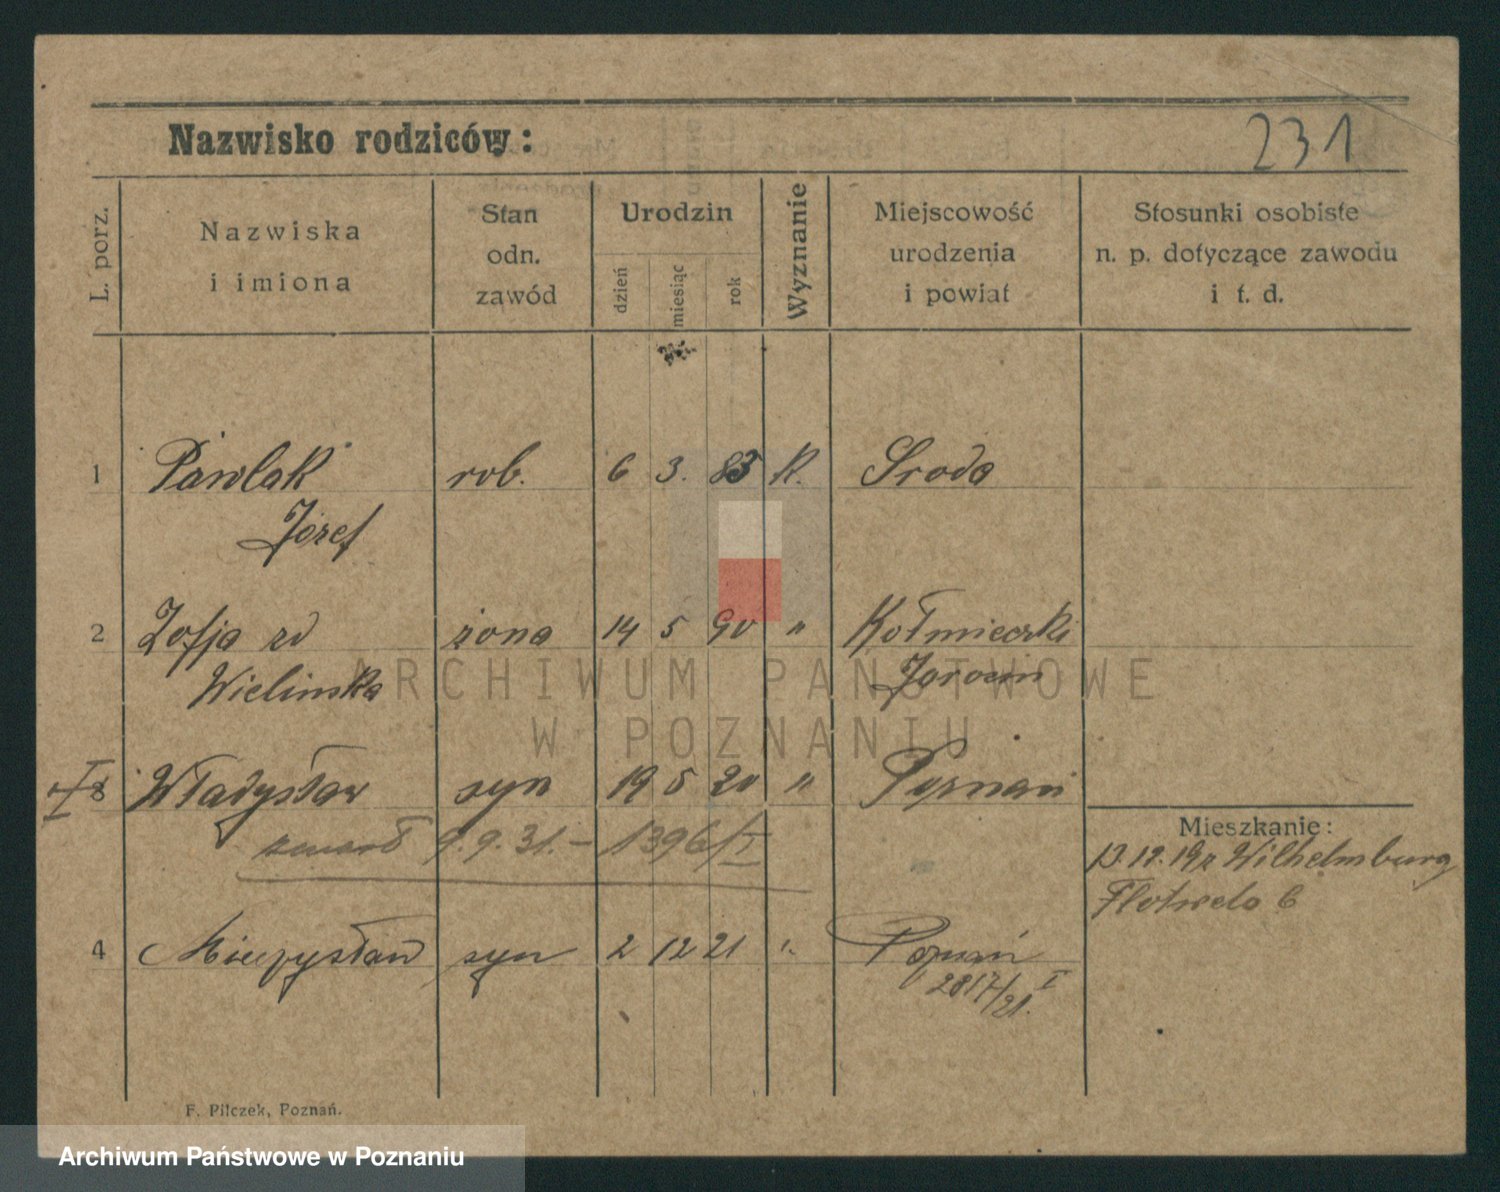 Nazwisko rodziców:
231
L. porz.
Nazwiska
i imiona
Stan
odn.
zawód
Urodzin
dzień
miesiąc
rok
Wyznanie
Miejscowość
urodzenia
i powiat
Stosunki osobiste
n. p. dotyczące zawodu
i t. d.
1 Pawlak rob. 6 3. 83 K. Sroda
Józef
2 Zofja zd żona 14 5 90 "
Wielinska Jarocin
ARCHIWUM PAŃSTWOWE
W POZNANIU
Władysław syn 19 5 20 " Poznań
zmarł 9.9.31.- 1396/I
Mieszkanie:
13.12.19 z Wilhelmburg
6
4 Mieczysław syn 2 12 21 " Poznań
2817/21. I
F. Pilczek, Poznań.
Archiwum Państwowe w Poznaniu